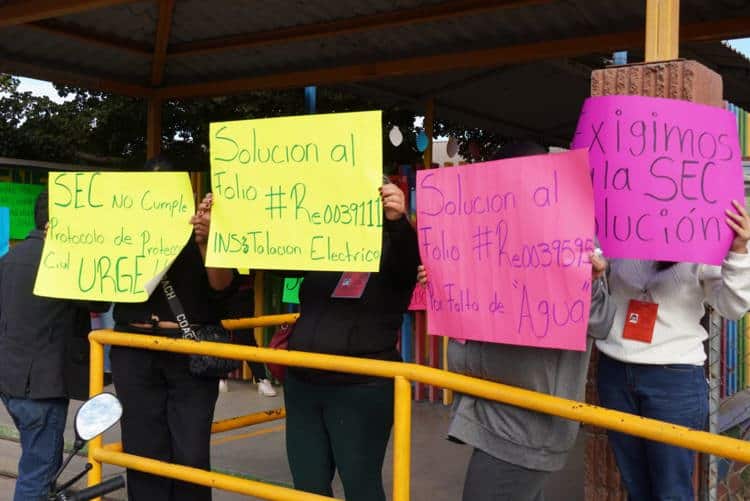 SEC No Cumple
Protocolo de Protecc
Civil URGE
Solucion al
Folio #Re0039111
INS&Talacion Electrica
Solucion al
Folio #Re0039595
Por Falta de "Agua"
Exigimos
a la SEC
Solución
COACH